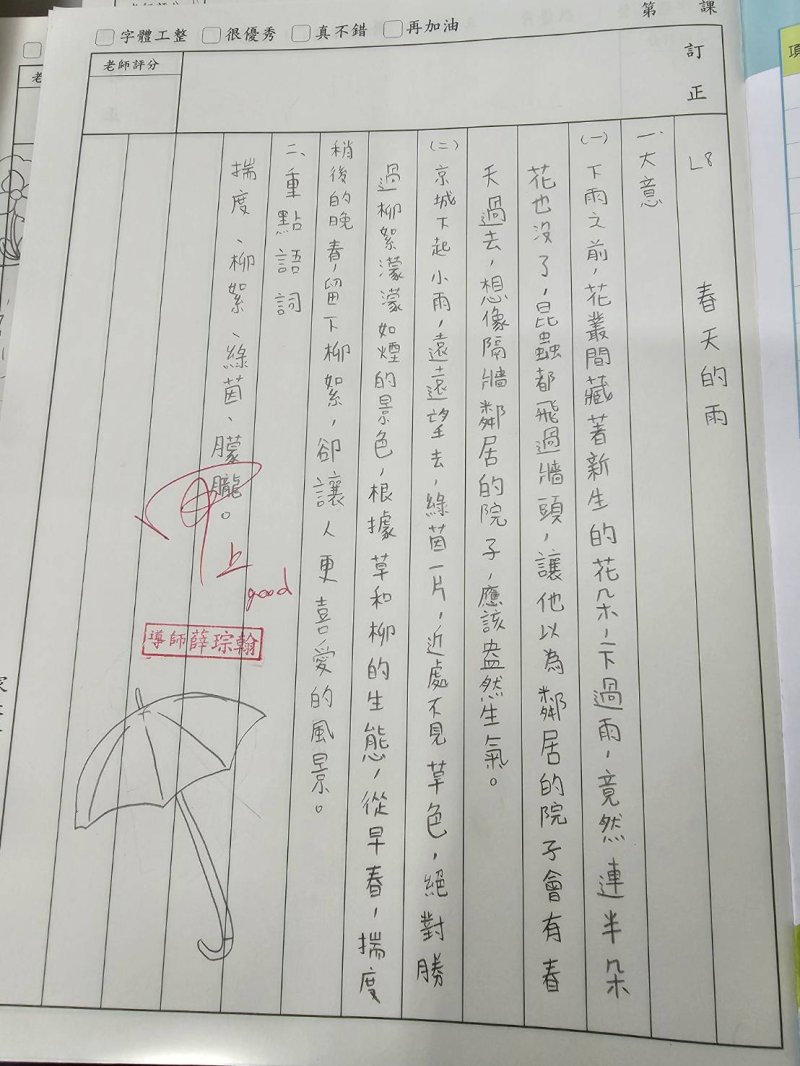 第 課
訂正
字體工整 很優秀 真不錯 再加油
老師評分
L8 春天的雨
一、大意
(一)下雨之前，花叢間藏著新生的花朵，一下過雨，竟然連半朵
花也沒了，昆蟲都飛過牆頭，讓他以為鄰居的院子會有春
天過去，想像隔牆鄰居的院子，應該盎然生氣。
(二)京城下起小雨，遠遠望去，綠茵一片，近處不見草色，絕對勝
過柳絮濛濛如煙的景色，根據草和柳的生態，從早春，揣度
稍後的晚春，留下柳絮，卻讓人更喜愛的風景。
二、重點語詞
揣度、柳絮、綠茵、朦朧。
甲上
good
導師薛琮翰